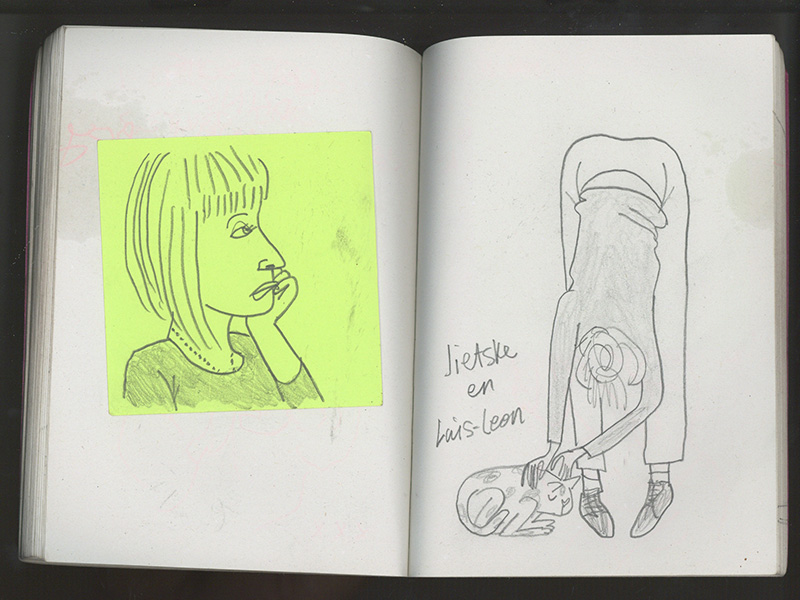 Jietske
en
Luis-Leon